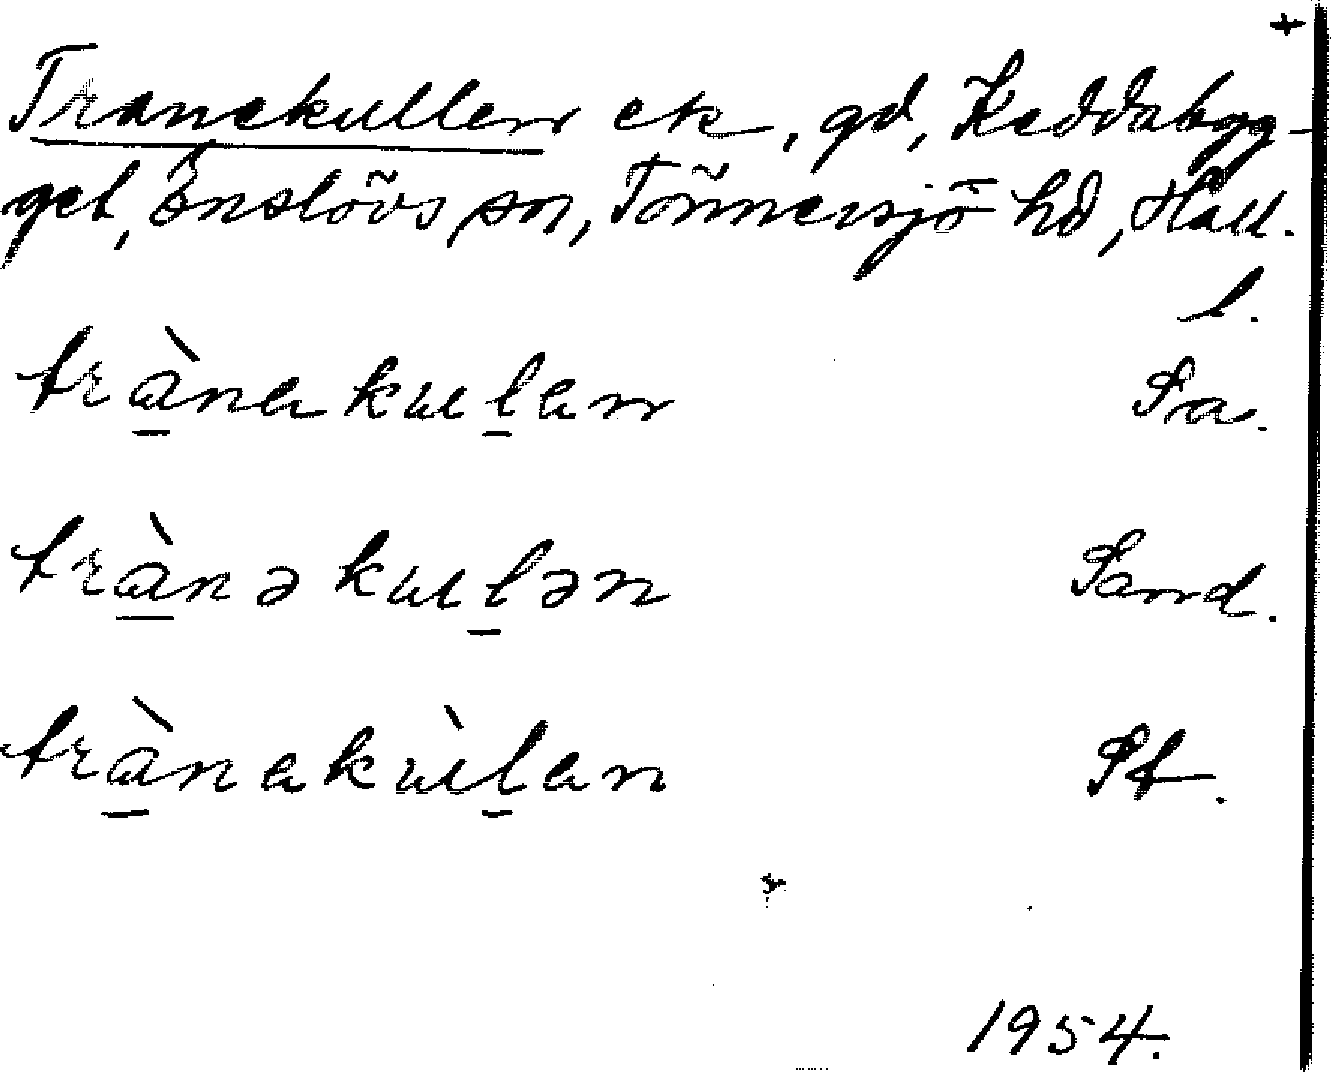 +
Tranekullen ek, gd, Heddabyg-
get, Enslövs sn, Tönnersjö hd, Hall.
l.
trànakuḷan Sa.
trànəkuḷən Sand.
trànakùḷan Pt.
1954.